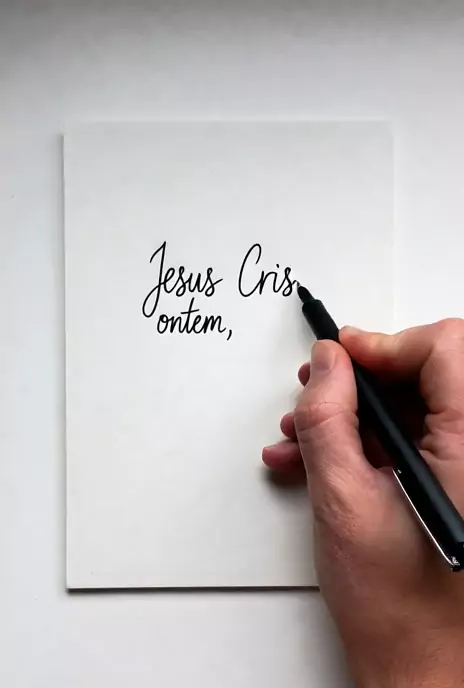 Jesus Cris
ontem,